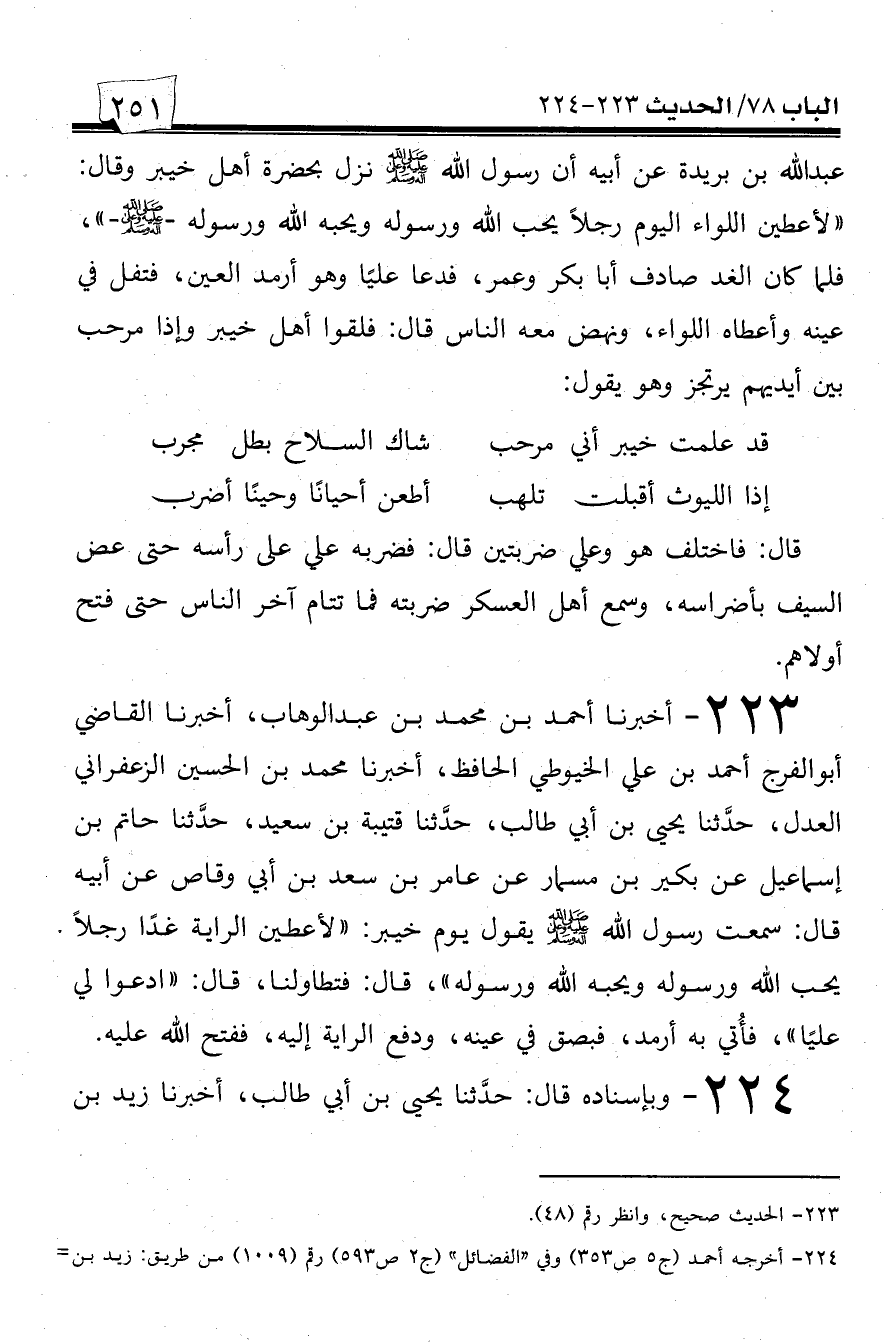 الباب ٧٨/ الحديث ٢٢٣-٢٢٤
٢٥١
عبدالله بن بريدة عن أبيه أن رسول الله ﷺ نزل بحضرة أهل خيبر وقال:
«لأعطين اللواء اليوم رجلاً يحب الله ورسوله ويحبه الله ورسوله -ﷺ-»،
فلما كان الغد صادف أبا بكر وعمر، فدعا عليًا وهو أرمد العين، فتفل في
عينه وأعطاه اللواء، ونهض معه الناس قال: فلقوا أهل خيبر وإذا مرحب
بين أيديهم يرتجز وهو يقول:
قد علمت خيبر أني مرحب شاك السلاح بطل مجرب
إذا الليوث أقبلت تلهب أطعن أحيانًا وحينًا أضرب
قال: فاختلف هو وعلي ضربتين قال: فضربه علي على رأسه حتى عض
السيف بأضراسه، وسمع أهل العسكر ضربته فما تتام آخر الناس حتى فتح
أولاهم.
٢٢٣- أخبرنا أحمد بن محمد بن عبدالوهاب، أخبرنا القاضي
أبوالفرج أحمد بن علي الخيوطي الحافظ، أخبرنا محمد بن الحسين الزعفراني
العدل، حدَّثنا يحيى بن أبي طالب، حدَّثنا قتيبة بن سعيد، حدَّثنا حاتم بن
إسماعيل عن بكير بن مسمار عن عامر بن سعد بن أبي وقاص عن أبيه
قال: سمعت رسول الله ﷺ يقول يوم خيبر: «لأعطين الراية غدًا رجلاً
يحب الله ورسوله ويحبه الله ورسوله»، قال: فتطاولنا، قال: «ادعوا لي
عليًا»، فأُتي به أرمد، فبصق في عينه، ودفع الراية إليه، ففتح الله عليه.
٢٢٤- وبإسناده قال: حدَّثنا يحيى بن أبي طالب، أخبرنا زيد بن
٢٢٣- الحديث صحيح، وانظر رقم (٤٨).
٢٢٤- أخرجه أحمد (ج٥ ص٣٥٣) وفي «الفضائل» (ج٢ ص٥٩٣) رقم (١٠٠٩) من طريق: زيد بن=